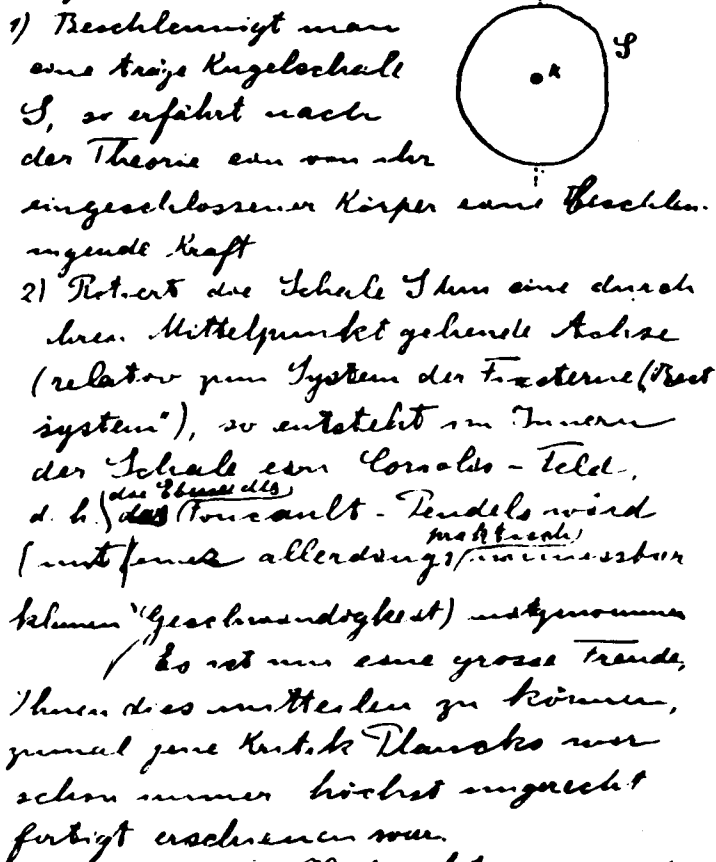 1) Beschleunigt man
eine träge Kugelschale
S, so erfährt nach
der Theorie ein von ihr
eingeschlossener Körper eine beschleu-
nigende Kraft
S
K
2) Rotiert die Schale S um eine durch
ihren Mittelpunkt gehende Achse
(relativ zum System der Fixsterne ("Rest
system"), so entsteht im Innern
der Schale ein Coriolis-Feld,
d. h. die Ebene des Foucault-Pendels wird
(mit einer allerdings praktisch unmessbar
kleinen Geschwindigkeit) mitgenommen
Es ist mir eine grosse Freude,
Ihnen dies mitteilen zu können,
zumal jene Kritik Plancks mir
schon immer höchst ungerecht
fertigt erschienen war.